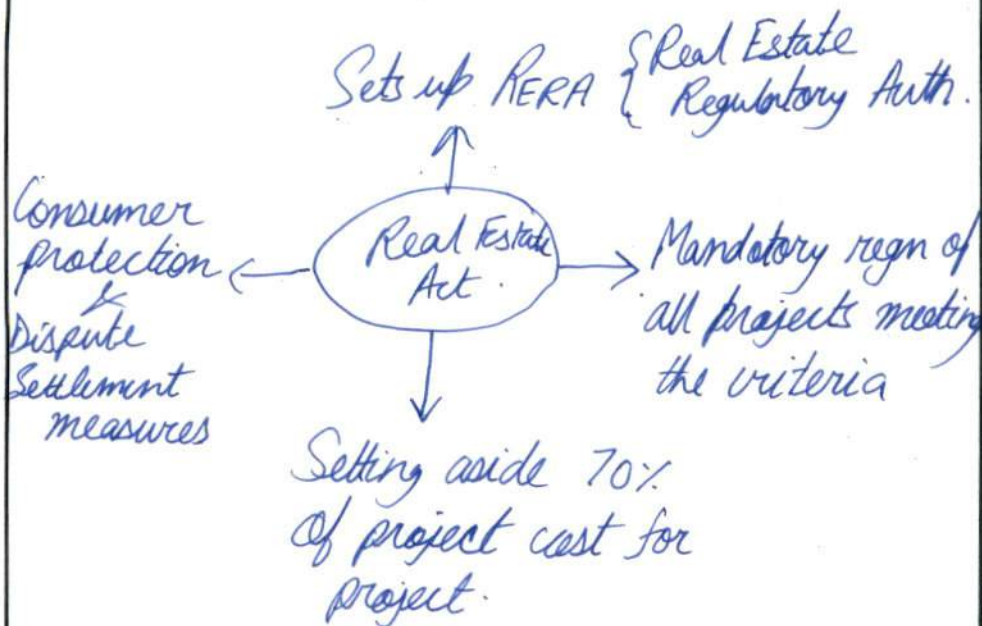 Sets up RERA { Real Estate
Regulatory Auth.
Consumer
protection
&
Dispute
Settlement
measures
Real Estate
Act.
Mandatory regn of
all projects meeting
the criteria
Setting aside 70%
of project cost for
project.